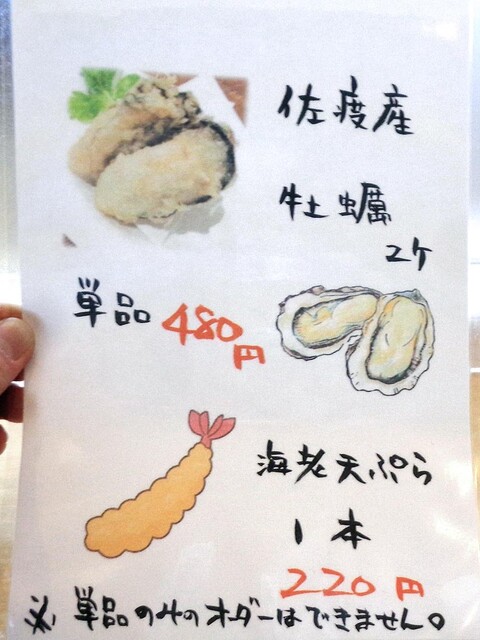 佐渡産
牡蠣
2ケ
単品 480円
海老天ぷら
1本
220円
※ 単品のみのオーダーはできません。